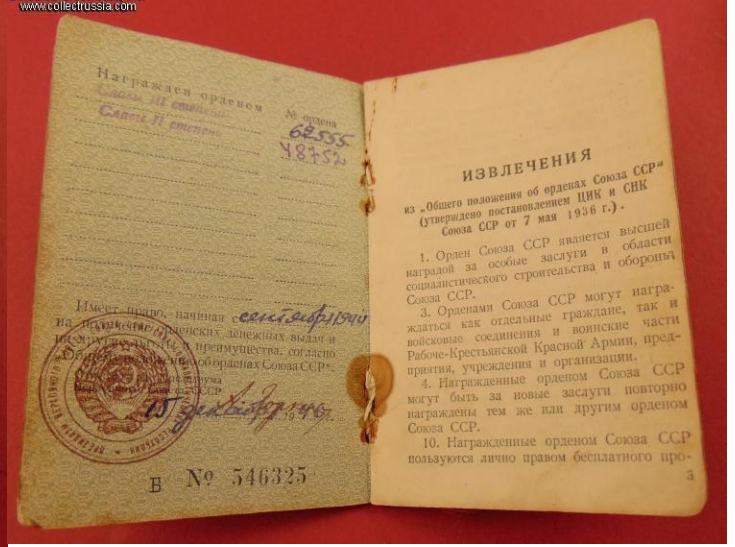 www.collectrussia.com
Награжден орденом
№ ордена
Славы III степени
62555
Славы II степени
48752
Имеет право, начиная с сентября 1944
на получение орденских денежных выдач и
на другие льготы и преимущества, согласно
"Общего положения об орденах Союза ССР".
СССР
15 декабря 1946 г.
Б № 546325
ИЗВЛЕЧЕНИЯ
из „Общего положения об орденах Союза ССР"
(утверждено постановлением ЦИК и СНК
Союза ССР от 7 мая 1936 г.).
1. Орден Союза ССР является высшей
наградой за особые заслуги в области
социалистического строительства и обороны
Союза ССР.
3. Орденами Союза ССР могут награ-
ждаться как отдельные граждане, так и
войсковые соединения и воинские части
Рабоче-Крестьянской Красной Армии, пред-
приятия, учреждения и организации.
4. Награжденные орденом Союза ССР
могут быть за новые заслуги повторно
награждены тем же или другим орденом
Союза ССР.
10. Награжденные орденом Союза ССР
пользуются лично правом бесплатного про-
3